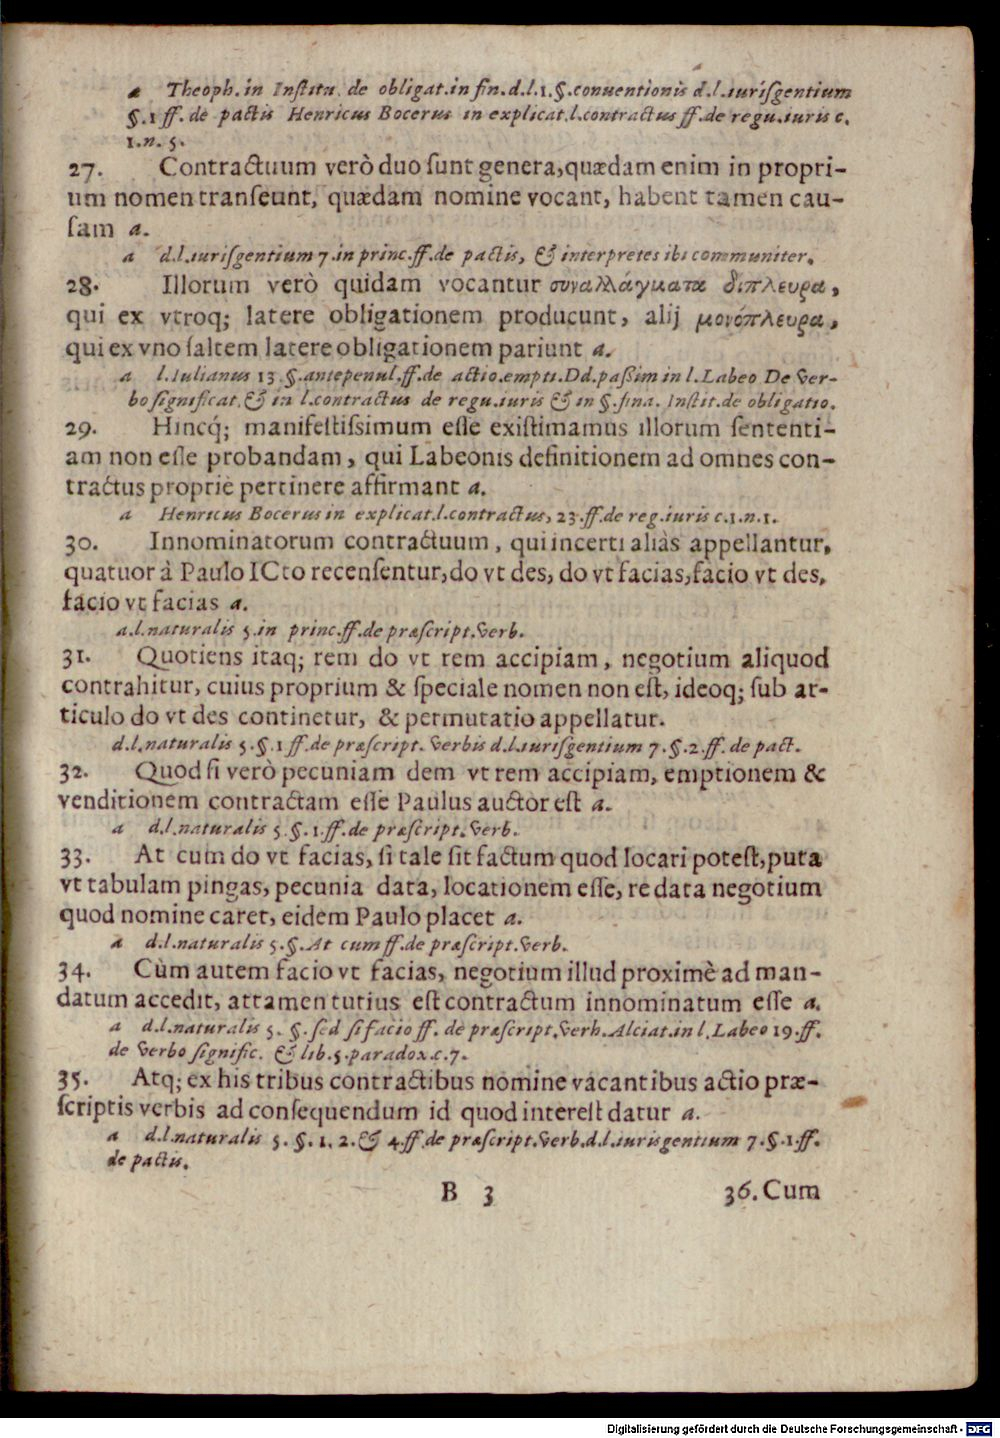 a Theoph. in Institu. de obligat. in fin. d.l. 1. §. conuentionis d. l. iurisgentium
§. 1 ff. de pactis Henricus Bocerus in explicat. l. contractus ff. de regu. iuris c.
1. n. 5.
27. Contractuum verò duo sunt genera, quædam enim in propri-
um nomen transeunt, quædam nomine vocant, habent tamen cau-
sam a.
a d. l. iurisgentium 7. in princ. ff. de pactis, & interpretes ibi communiter.
28. Illorum verò quidam vocantur συναλλάγματα δίπλευρα,
qui ex vtroq; latere obligationem producunt, alij μονόπλευρα,
qui ex vno saltem latere obligationem pariunt a.
a l. Iulianus 13. §. antepenul. ff. de actio. empti. Dd. passim in l. Labeo De Ver-
bo significat. & in l. contractus de regu. iuris & in §. fina. Instit. de obligatio.
29. Hincq́; manifestissimum esse existimamus illorum sententi-
am non esse probandam, qui Labeonis definitionem ad omnes con-
tractus propriè pertinere affirmant a.
a Henricus Bocerus in explicat. l. contractus, 23. ff. de reg. iuris c. 1. n. 1.
30. Innominatorum contractuum, qui incerti aliàs appellantur,
quatuor à Paulo ICto recensentur, do vt des, do vt facias, facio vt des,
facio vt facias a.
a. l. naturalis 5. in princ. ff. de præscript. Verb.
31. Quotiens itaq; rem do vt rem accipiam, negotium aliquod
contrahitur, cuius proprium & speciale nomen non est, ideoq; sub ar-
ticulo do vt des continetur, & permutatio appellatur.
d. l. naturalis 5. §. 1 ff. de præscript. Verbis d. l. iurisgentium 7. §. 2. ff. de pact.
32. Quod si verò pecuniam dem vt rem accipiam, emptionem &
venditionem contractam esse Paulus auctor est a.
a d. l. naturalis 5. §. 1. ff. de præscript. Verb.
33. At cum do vt facias, si tale sit factum quod locari potest, puta
vt tabulam pingas, pecunia data, locationem esse, re data negotium
quod nomine caret, eidem Paulo placet a.
a d. l. naturalis 5. §. At cum ff. de præscript. Verb.
34. Cùm autem facio vt facias, negotium illud proximè ad man-
datum accedit, attamen tutius est contractum innominatum esse a.
a d. l. naturalis 5. §. sed si facio ff. de præscript. Verb. Alciat. in l. Labeo 19. ff.
de Verbo signific. & lib. 5. paradox. c. 7.
35. Atq; ex his tribus contractibus nomine vacantibus actio præ-
scriptis verbis ad consequendum id quod interest datur a.
a d. l. naturalis 5. §. 1. 2. & 4. ff. de præscript. Verb. d. l. iurisgentium 7. §. 1. ff.
de pactis.
B 3 36. Cum
Digitalisierung gefördert durch die Deutsche Forschungsgemeinschaft - DFG